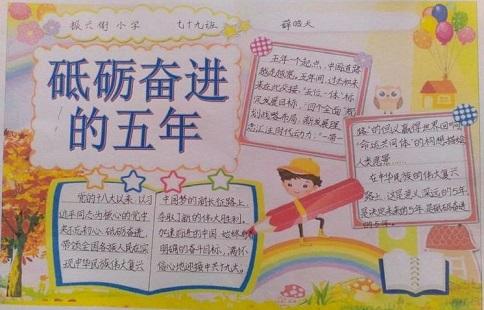 振兴街小学 七十九班 薛皓天
砥砺奋进
的五年
五年一个起点，中国道路
越走越宽。五年间，过去和未
来在此交接，“五位一体”标
定发展目标，“四个全面”
划战略布局，新发展理
念汇注时代动力，“一带一
路”的倡议赢得世界回响，
命运共同体”的构想描绘
人类愿景……
在中华民族的伟大复兴
路上，这是意义深远的5年，
是决定未来的5年，是砥砺奋进
的5年。
党的十八大以来，以习
近平同志为核心的党中
央不忘初心、砥砺奋进，
带领全国各族人民在实
现中华民族伟大复兴
中国梦的新长征路上，
夺取了新的伟大胜利，
加速前进的中国，始终与
明确的奋斗目标，满怀
信心地迎接中共十九大。